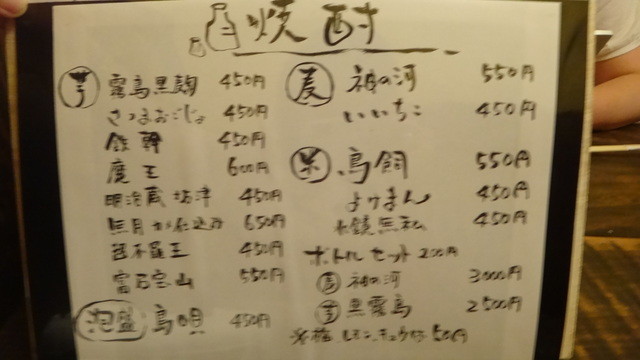 焼酎
芋 霧島黒麹 450円
さつまおごじょ 450円
鉄幹 450円
魔王 600円
明治蔵 坊津 450円
無月 かめ仕込み 650円
甚不羅王 450円
富乃宝山 550円
泡盛 島唄 450円
麦 神の河 550円
いいちこ 450円
米 鳥飼 550円
よけまん 450円
水鏡無私 450円
ボトルセット 200円
麦 神の河 3000円
芋 黒霧島 2500円
梅、レモン、キュウリ 50円